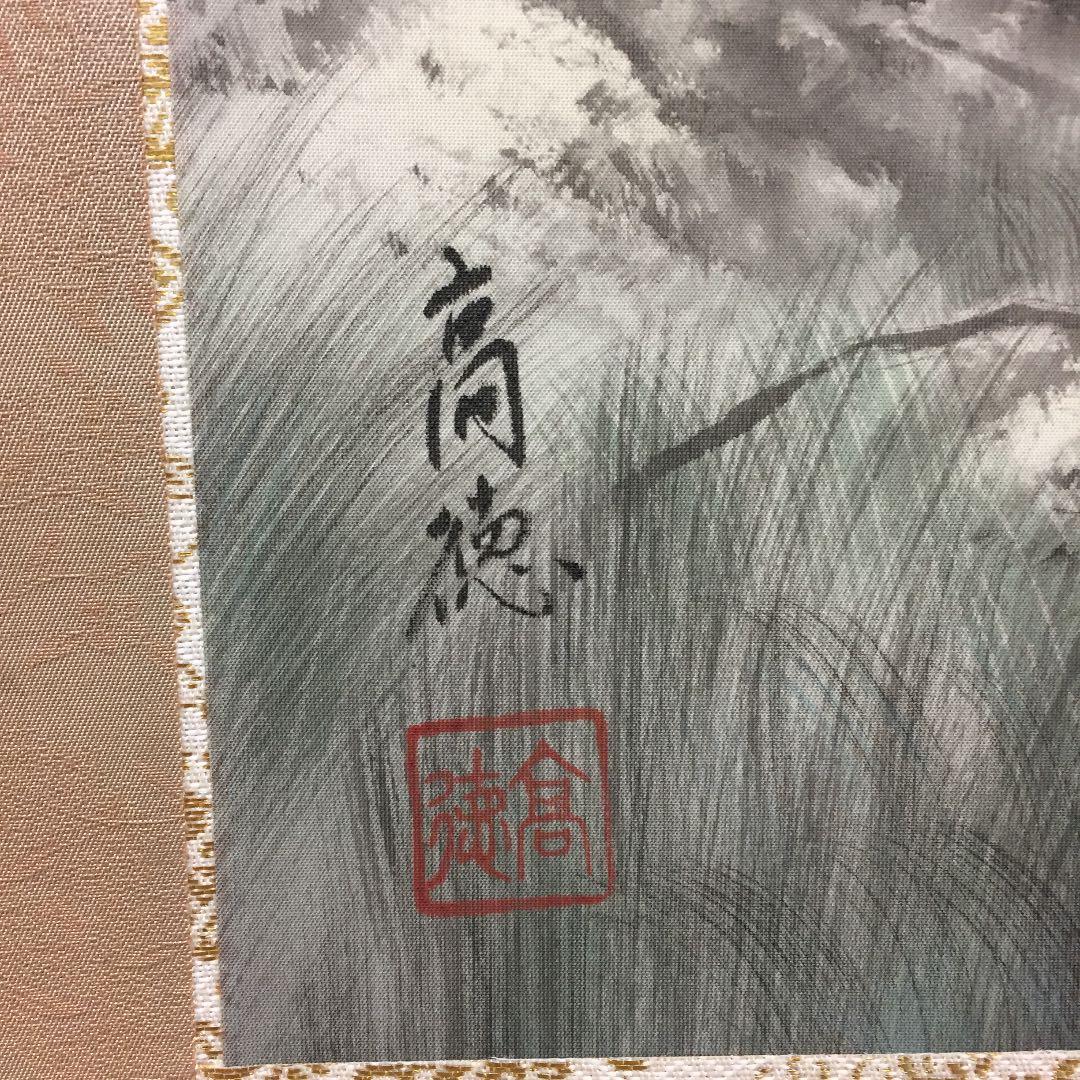 高徳
高徳